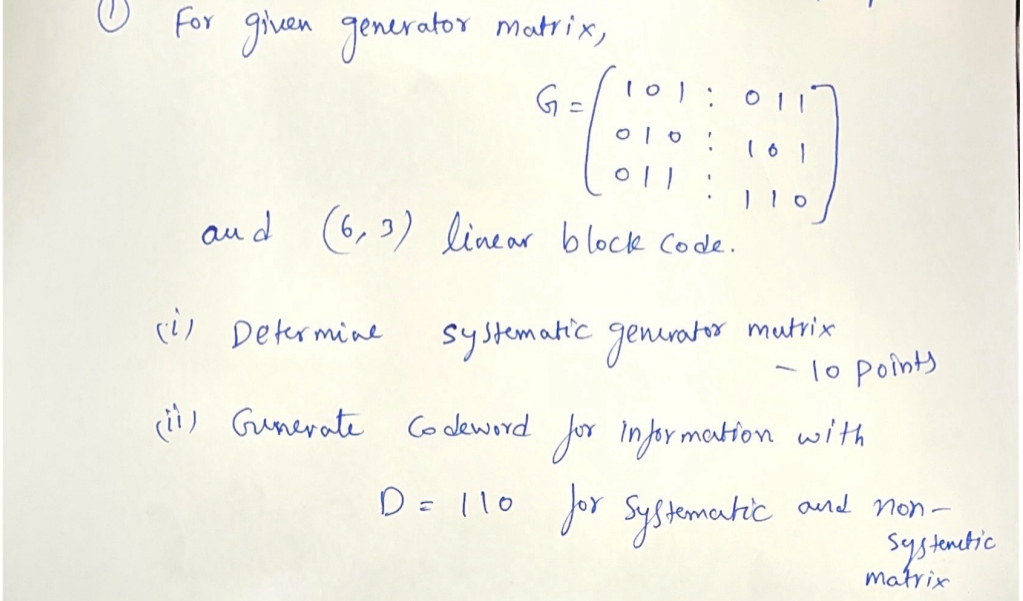 (1) For given generator matrix,
G = ( 1 0 1 : 0 1 1
0 1 0 : 1 0 1
0 1 1 : 1 1 0 )
and (6, 3) linear block code.
(i) Determine systematic generator matrix
- 10 points
(ii) Generate Codeword for information with
D = 110 for Systematic and non-
systemetic
matrix